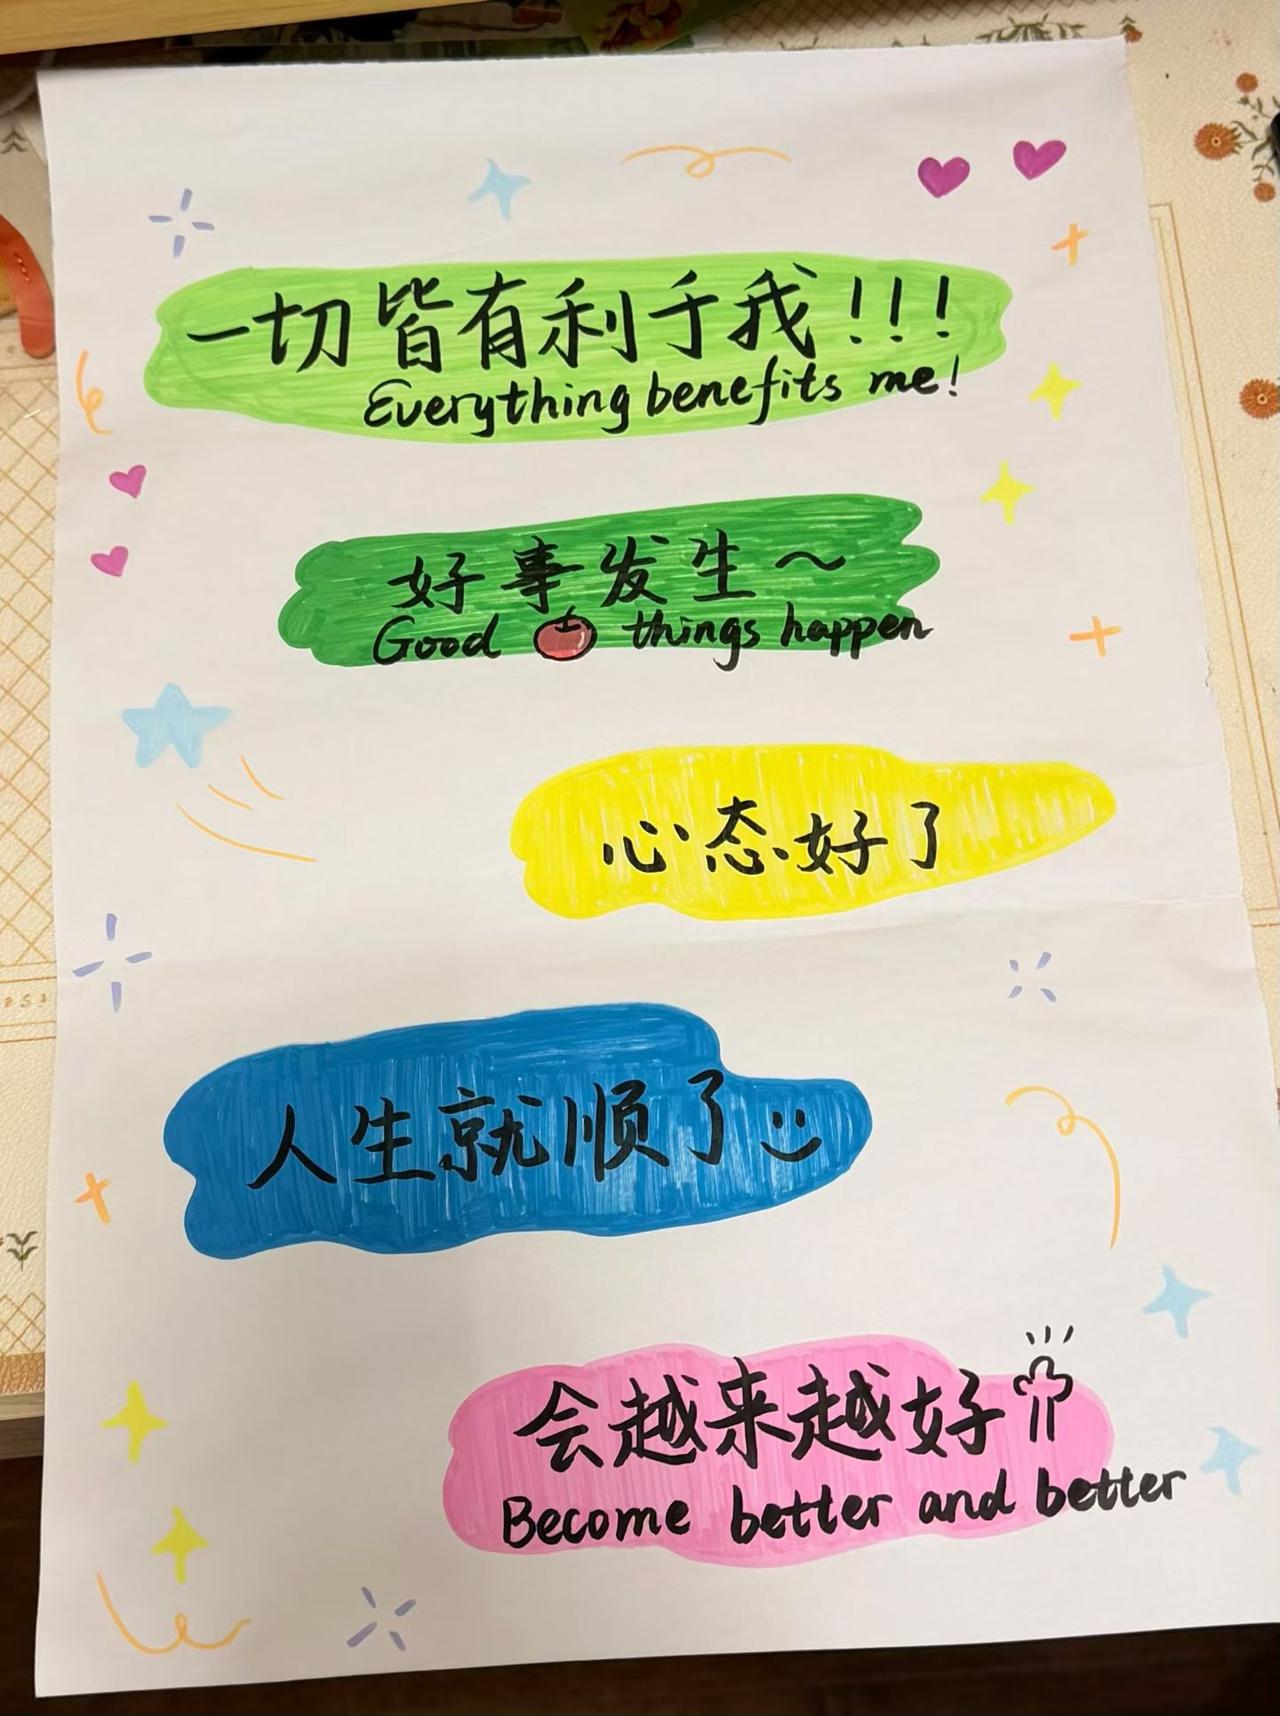 一切皆有利于我!!!
Everything benefits me!
好事发生~
Good things happen
心态好了
人生就顺了
会越来越好
Become better and better